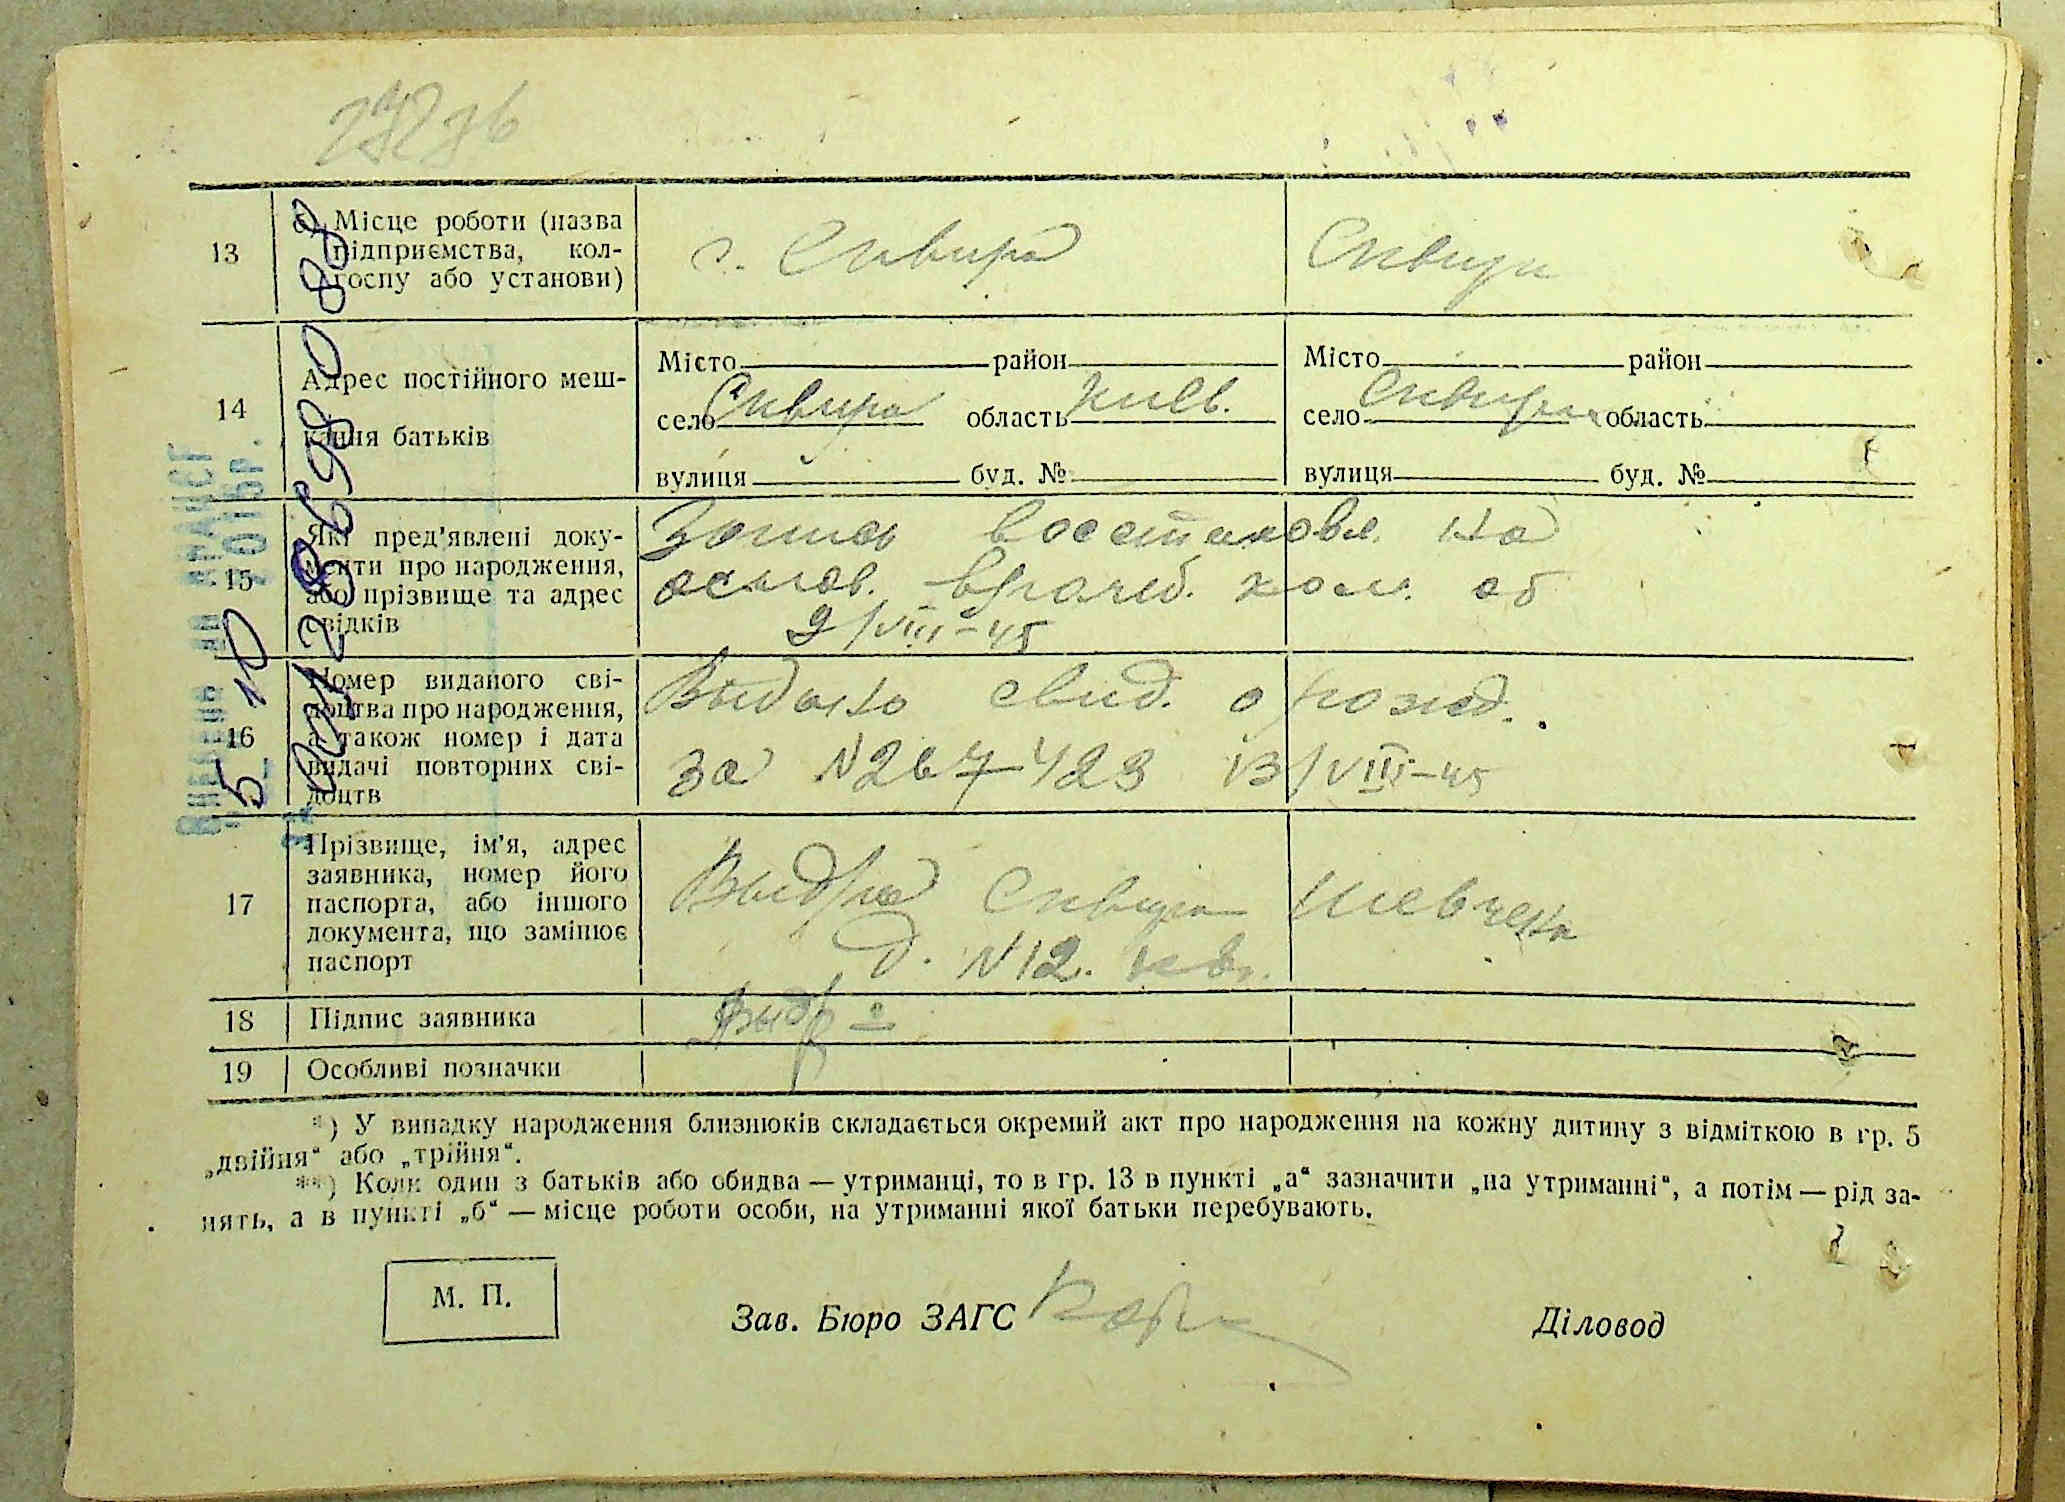 13
б) Місце роботи (назва
підприємства, кол-
госпу або установи)
г. Сквира
Сквира
14
Адрес постійного меш-
кання батьків
Місто район
село Сквира область Киев.
вулиця буд. №
Місто район
село Сквира область
вулиця буд. №
15
Які пред'явлені доку-
менти про народження,
або прізвище та адрес
свідків
Запись восстановл. на
основ. врачеб. ком. от
9/VIII-45
16
Номер виданого сві-
доцтва про народження,
а також номер і дата
видачі повторних сві-
доцтв
Выдано свид. о рожд.
за N267423 13/VIII-45
17
Прізвище, ім'я, адрес
заявника, номер його
паспорта, або іншого
документа, що замінює
паспорт
Выдра Сквира Шевченка
д. N12. кв.
18
Підпис заявника
19
Особливі позначки
*) У випадку народження близнюків складається окремий акт про народження на кожну дитину з відміткою в гр. 5
„двійня“ або „трійня“.
**) Коли один з батьків або обидва — утриманці, то в гр. 13 в пункті „а“ зазначити „на утриманні“, а потім — рід за-
нять, а в пункті „б“ — місце роботи особи, на утриманні якої батьки перебувають.
М. П.
Зав. Бюро ЗАГС
Діловод